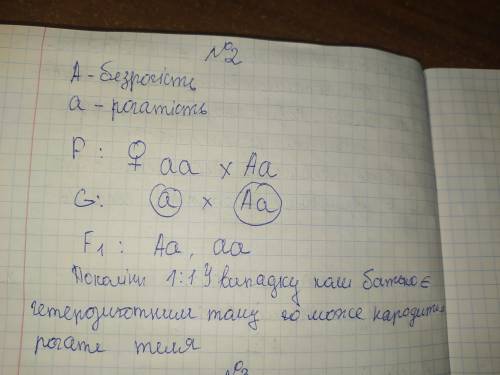 №2
А - безрогість
а - рогатість
Р: ♀ аа х Аа
G: а х Аа
F₁: Аа, аа
1:1 У випадку коли батько є
гетерозиготним тому що може народити
рогате теля
№3